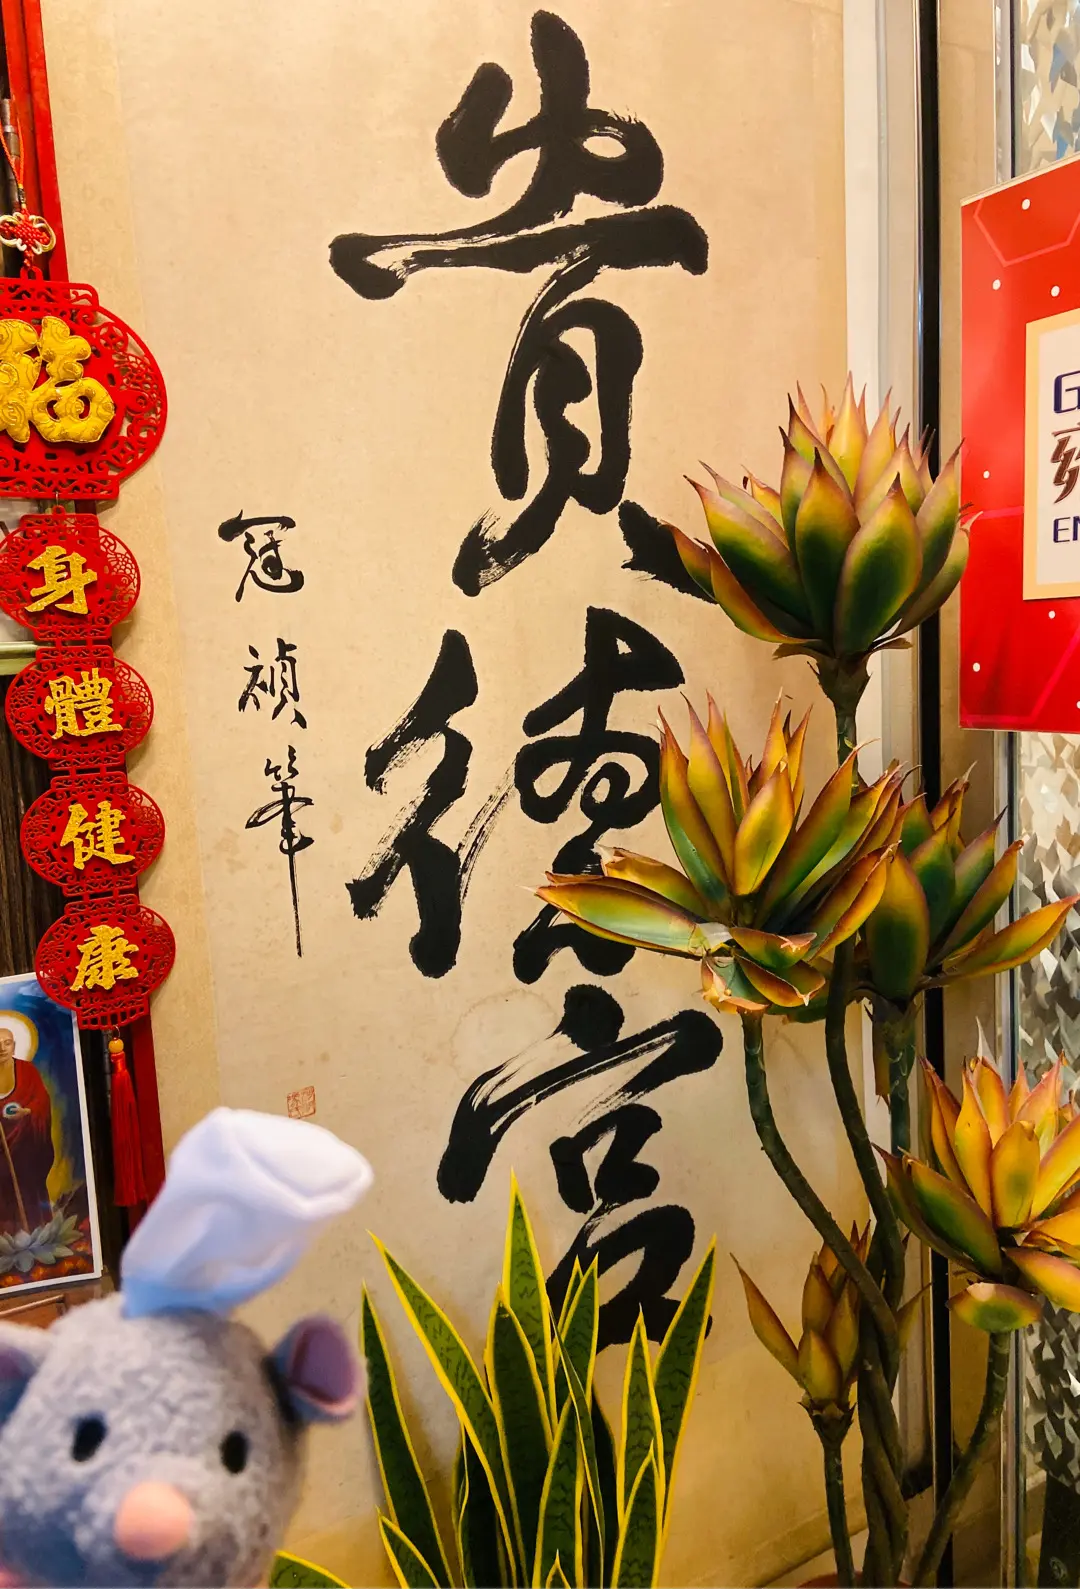 貴德宮
冠禎筆
福
身
體
健
康
G
EN